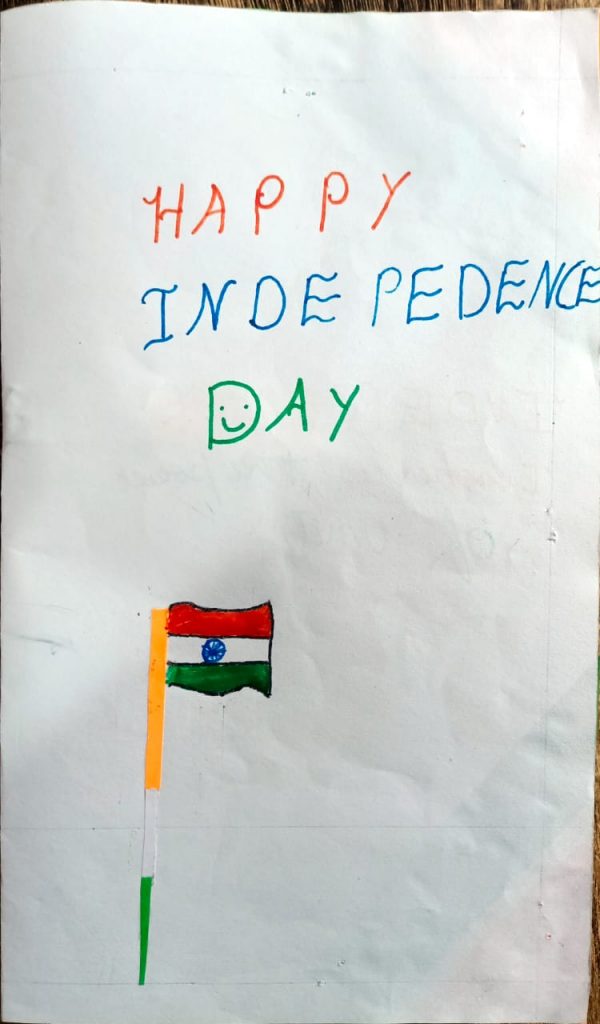 HAPPY
INDEPEDENCE
DAY